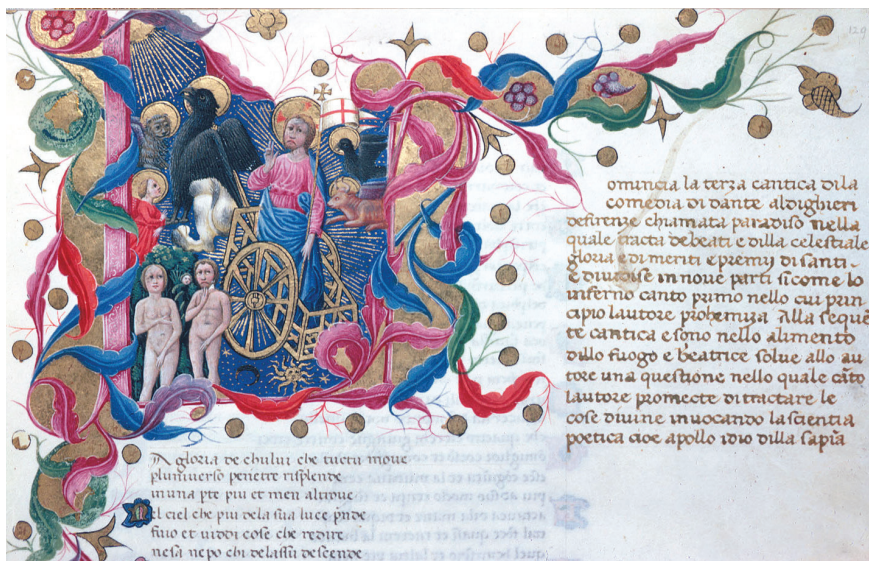 129
omincia la terza cantica dila
comedia di dante aldighieri
defirenze chiamata paradiso nella
quale tracta debeati e dilla celestiale
gloria e di meriti e premy di santi
e diuidise in noue parti sicome lo
inferno canto primo nello cui prin
cipio lautore prohemiza Alla sequē
te cantica e sono nello alimento
dillo fuogo e beatrice solue allo au
tore una questione nello quale cāto
lautore promecte di tractare le
cose diuine inuocando la scientia
poetica cioe apollo idio dilla sapīa
A gloria de chului che tuctu moue
pluniuerso penetre risplende
inuna pte piu et men altroue
el ciel che piu dela sua luce pnde
fuio et uiddi cose che redire
nesa nepo chi delassu descende